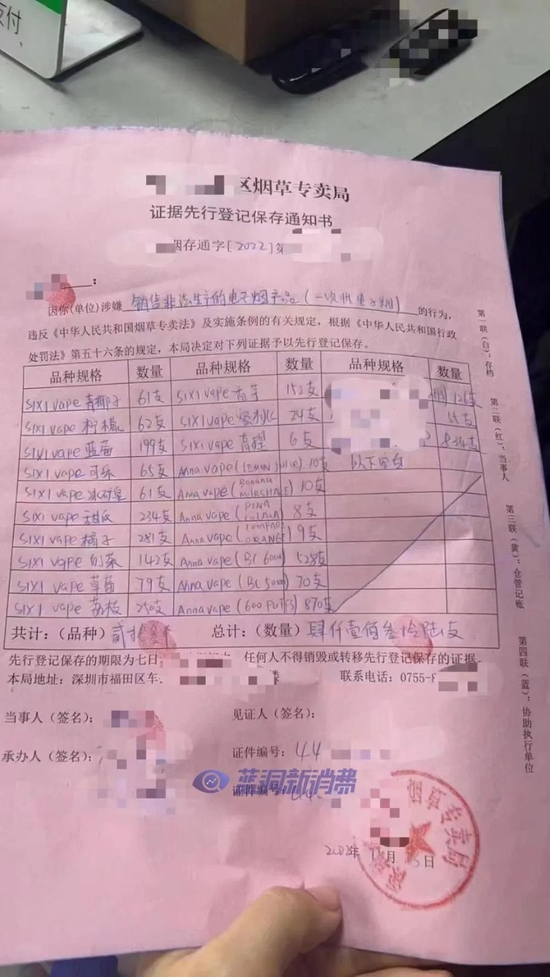 支付
区烟草专卖局
证据先行登记保存通知书
烟存通字[2022]第
:
因你(单位)涉嫌 销售非法生产的电子烟产品(一次性电子烟) 的行为,
违反《中华人民共和国烟草专卖法》及实施条例的有关规定,根据《中华人民共和国行政
处罚法》第五十六条的规定,本局决定对下列证据予以先行登记保存。
品种规格 数量 品种规格 数量 品种规格 数量
SIXI vape 青椰子 61支 SIXI vape 152支
SIXI vape 柠檬 62支 SIXI vape 24支
SIXI vape 蓝莓 199支 SIXI vape 青提 6支
SIXI vape 可乐 65支 Anna vape 10支 以下空白
SIXI vape 61支 Anna vape (BANANA MILKSHAKE) 10支
SIXI vape 234支 Anna vape 8支
SIXI vape 橘子 281支 Anna vape 9支
SIXI vape 红茶 142支 Anna vape 528支
SIXI vape 草莓 79支 Anna vape 70支
SIXI vape 荔枝 250支 Anna vape (600 PUFFS) 870支
共计:(品种) 总计:(数量) 肆仟壹佰叁拾陆支
先行登记保存的期限为七日. 任何人不得销毁或转移先行登记保存的证据。
本局地址:深圳市福田区车. 联系电话:0755-8
当事人(签名): 见证人(签名):
承办人(签名): 证件编号:44
蓝洞新消费
证件编号:44
月 日
烟草专卖局
第一联(白):存档
第二联(红):当事人
第三联(黄):仓管记帐
第四联(蓝):协助执行单位